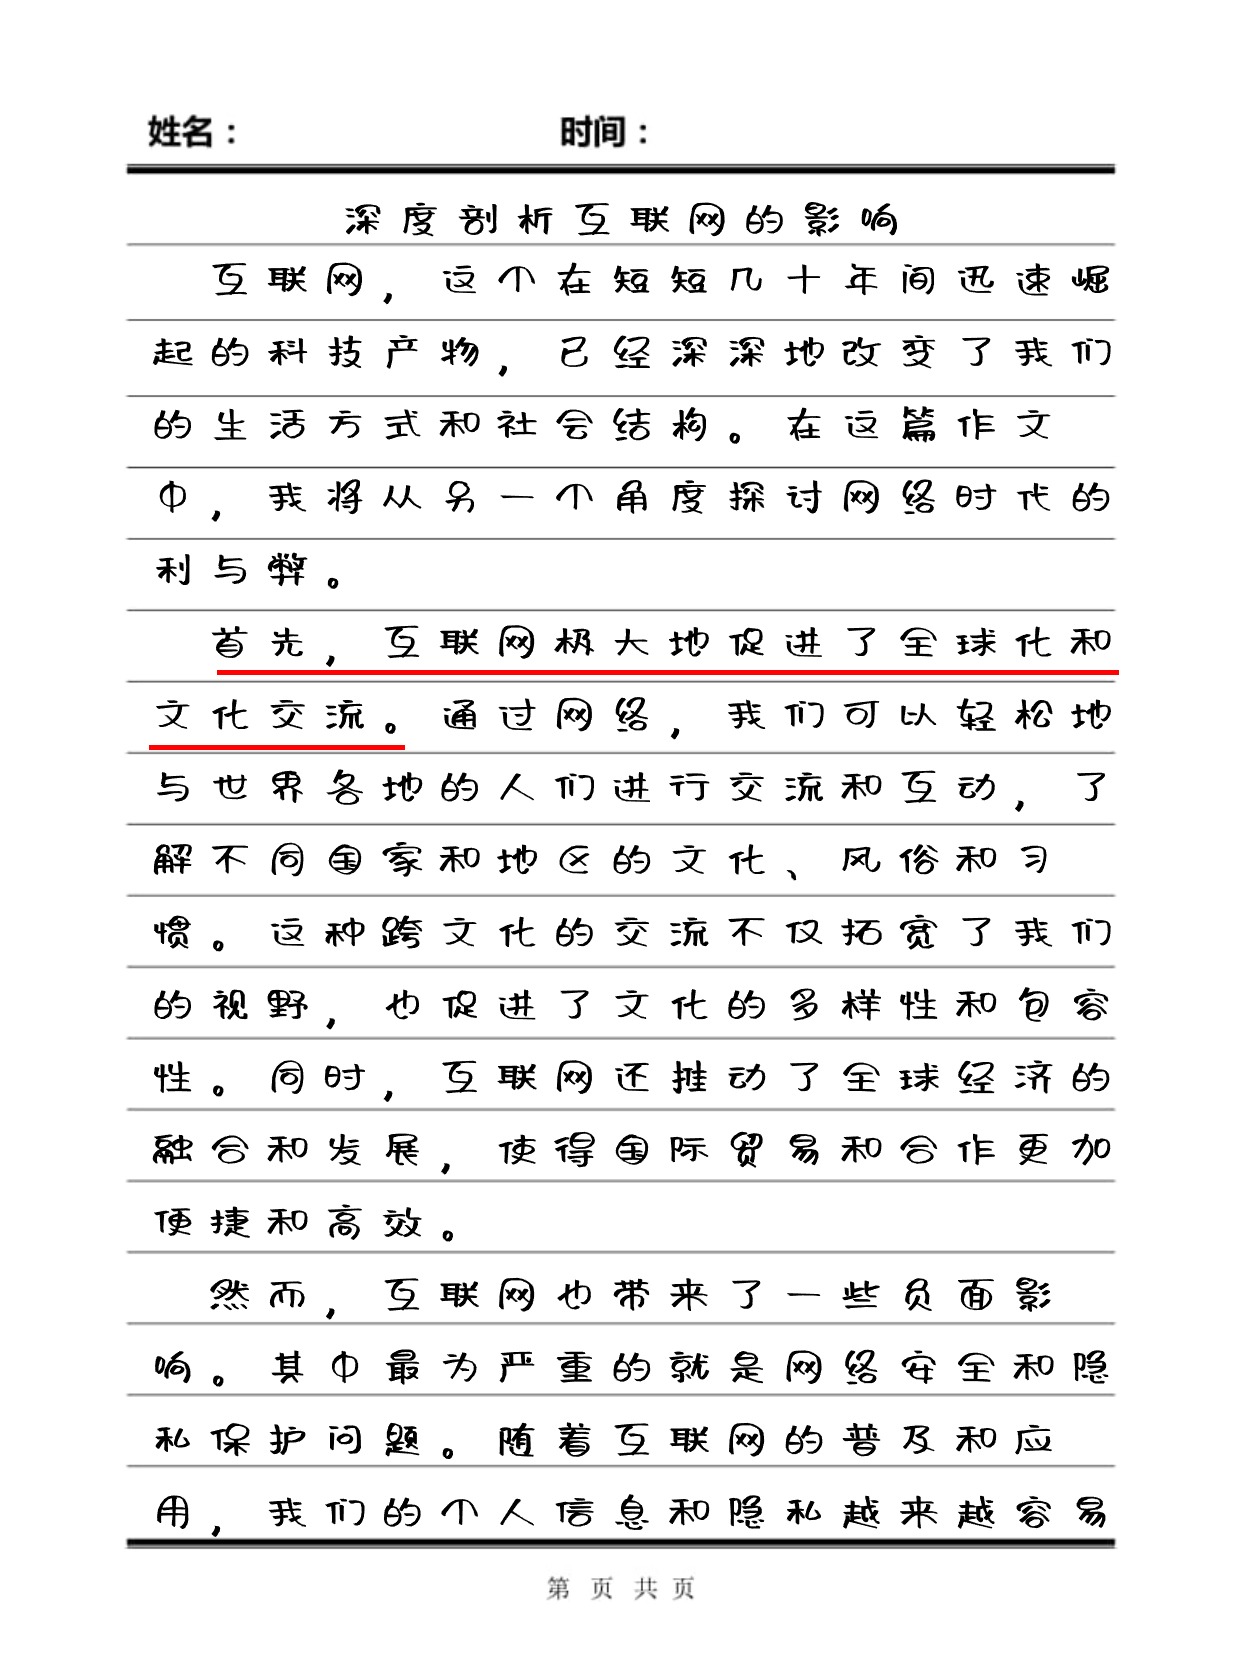 姓名： 时间：
深度剖析互联网的影响
互联网，这个在短短几十年间迅速崛
起的科技产物，已经深深地改变了我们
的生活方式和社会结构。在这篇作文
中，我将从另一个角度探讨网络时代的
利与弊。
首先，互联网极大地促进了全球化和
文化交流。通过网络，我们可以轻松地
与世界各地的人们进行交流和互动，了
解不同国家和地区的文化、风俗和习
惯。这种跨文化的交流不仅拓宽了我们
的视野，也促进了文化的多样性和包容
性。同时，互联网还推动了全球经济的
融合和发展，使得国际贸易和合作更加
便捷和高效。
然而，互联网也带来了一些负面影
响。其中最为严重的就是网络安全和隐
私保护问题。随着互联网的普及和应
用，我们的个人信息和隐私越来越容易
第 页 共 页